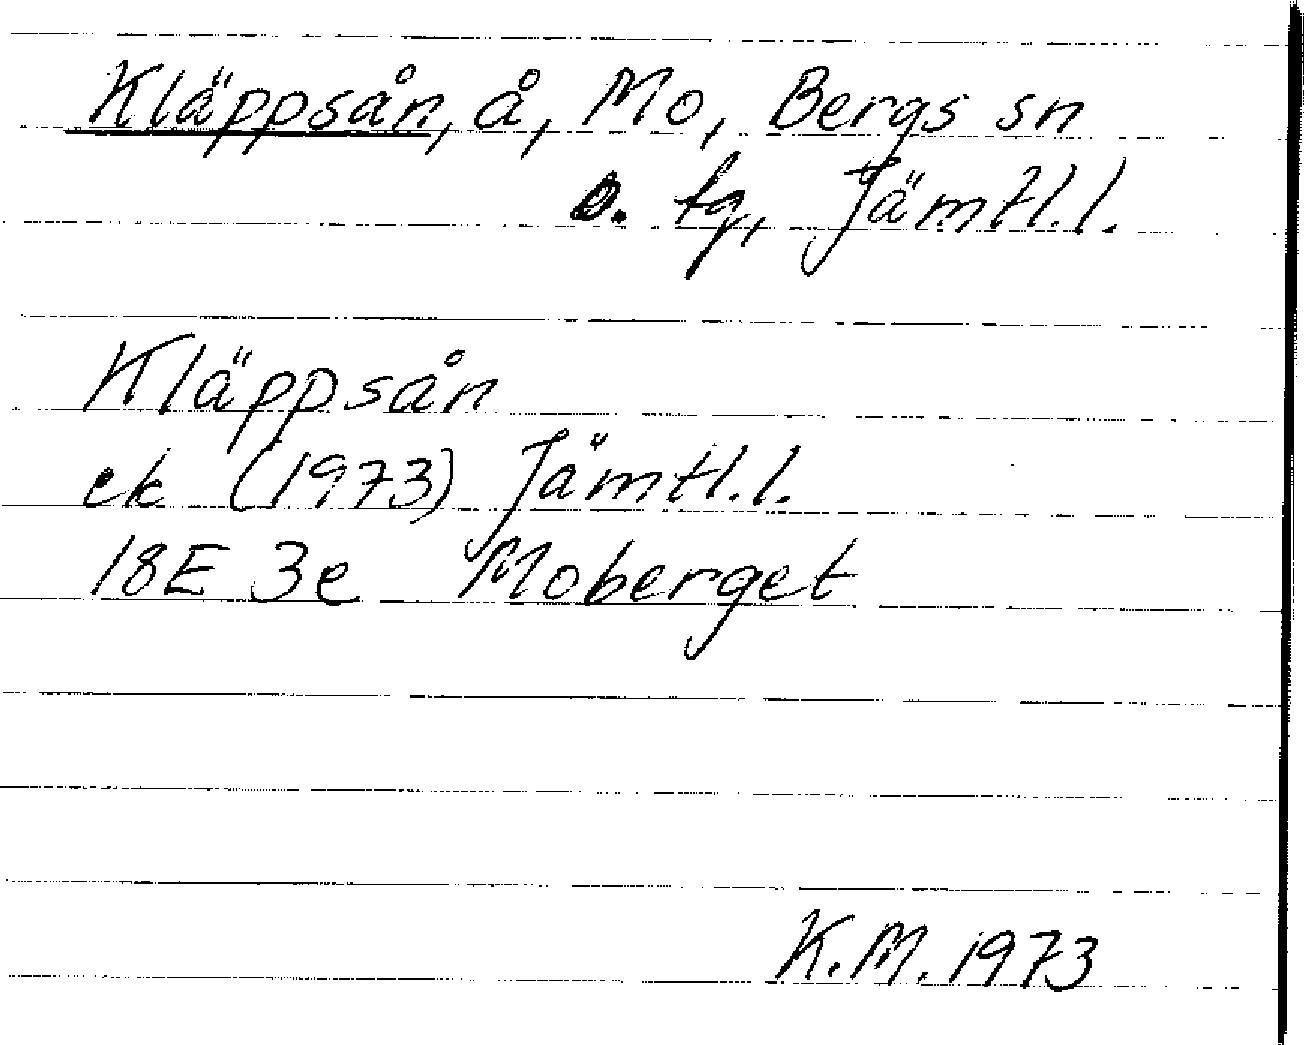 Kläppsån, å, Mo, Bergs sn
o. tg, Jämtl.l.
Kläppsån
ek (1973) Jämtl.l.
18E 3e Moberget
K.M. 1973